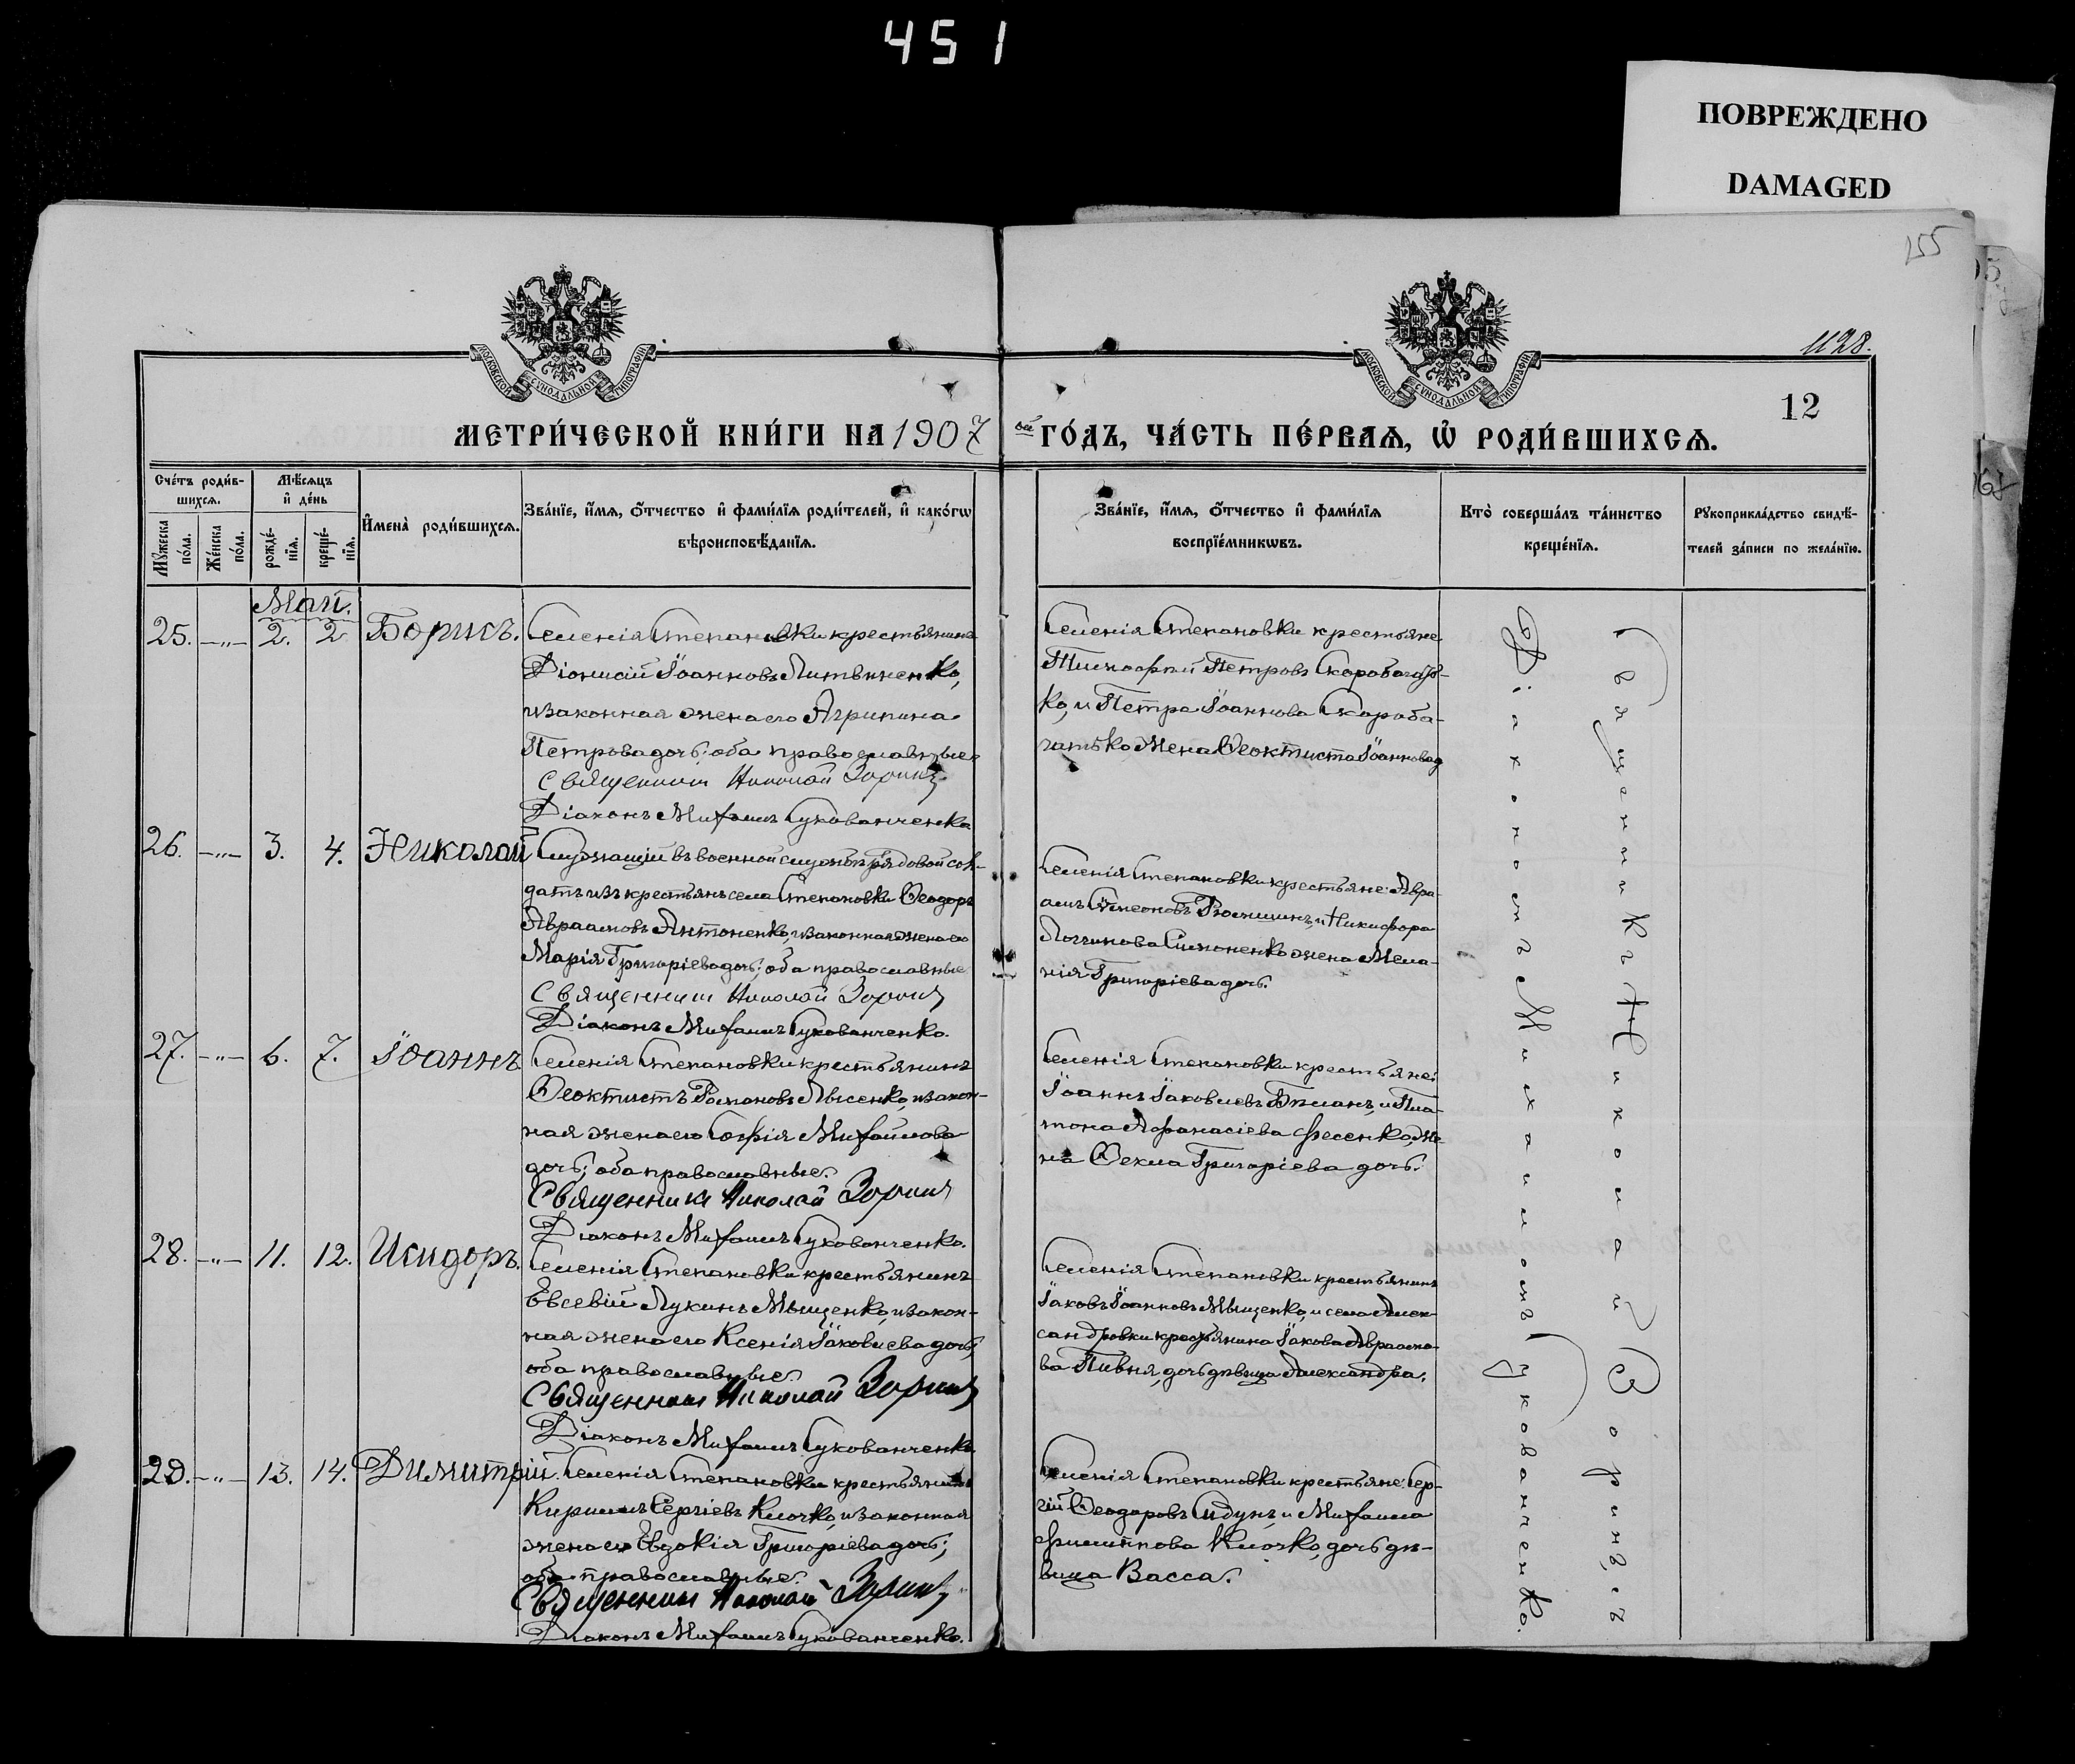 451
ПОВРЕЖДЕНО
DAMAGED
155
1128.
12
МОСКОВСКОЙ СѴНОДАЛЬНОЙ ТИПОГРАФІИ
МОСКОВСКОЙ СѴНОДАЛЬНОЙ ТИПОГРАФІИ
МЕТРИ́ЧЕСКОЙ КНИ́ГИ НА 1907 ой ГО́ДЪ, ЧА́СТЬ ПЕ́РВАѦ, Ѽ РОДИ́ВШИХСѦ.
Сче́тъ роди́в-
шихсѧ.
Мꙋжеска по́ла.
Же́нска по́ла.
Мѣ́сѧцъ
и҆ де́нь
рожде́-
нїѧ.
креще́-
нїѧ.
И҆мена̀ роди́вшихсѧ.
Зва́нїе, и҆́мѧ, ѻ҆́тчество и҆ фами́лїѧ роди́телей, и҆ како́гѡ
вѣроисповѣ́данїѧ.
Зва́нїе, и҆́мѧ, ѻ҆́тчество и҆ фами́лїѧ
воспрїе́мникѡвъ.
Кто̀ соверша́лъ та́инство
креще́нїѧ.
Рꙋкоприкла́дство свидѣ́-
телей за́писи по жела́нїю.
Май.
25. —"— 2. 2 Борисъ.
Селенія Степановки крестьянинъ
Діонисій Іоанновъ Литвиненко,
и законная жена его Агрипина
Петрова дочь; оба православные
Священникъ Николай Зоринъ
Діаконъ Михаилъ Сукованченко
Селенія Степановки крестьяне
Тимофей Петровъ Скоробагать-
ко, и Петра Іоаннова Скороба-
гатько жена Ѳеоктиста Іоаннова д
26. —"— 3. 4. Николай
Служащій въ военной службѣ рядовой сол-
датъ изъ крестьянъ села Степановки Ѳеодоръ
Авраамовъ Антоненко, и законная жена его
Марія Григоріева дочь; оба православные
Священникъ Николай Зоринъ
Діаконъ Михаилъ Сукованченко.
Селенія Степановки крестьяне: Авра-
амъ Симеоновъ и Никифора
Логгинова Симоненко жена Мела-
нія Григоріева дочь.
27. —"— 6. 7. Іоаннъ
Селенія Степановки крестьянинъ
Ѳеоктистъ Романовъ Лысенко, и закон-
ная жена его Софія Михайлова
дочь; оба православные.
Священникъ Николай Зоринъ
Діаконъ Михаилъ Сукованченко.
Селенія Степановки крестьяне:
Іоаннъ Іаковлевъ и Пла-
тона Афанасіева Фесенко, же-
на Ѳекла Григоріева дочь.
28. —"— 11. 12. Исидоръ.
Селенія Степановки крестьянинъ
Евсевій Лукинъ Мыщенко, и закон-
ная жена его Ксенія Іаковлева дочь;
оба православные.
Священникъ Николай Зоринъ
Діаконъ Михаилъ Сукованченко
Селенія Степановки крестьянинъ
Іаковъ Іоанновъ Мыщенко, и села Алек-
сандровки крестьянина Іакова Авраамо-
ва Пивня, дочь дѣвица Александра.
29. —"— 13. 14. Димитрій.
Селенія Степановки крестьянинъ
Кириллъ Сергіевъ Клочко, и законная
жена его Евдокія Григоріева дочь;
оба православные.
Священникъ Николай Зоринъ
Діаконъ Михаилъ Сукованченко.
Селенія Степановки крестьяне: Сер-
гій Ѳеодоровъ и Михаила
Филиппова Клочко, дочь дѣ-
вица Васса.
Священникъ Николай Зоринъ съ
Діакономъ Михаиломъ Сукованченко.